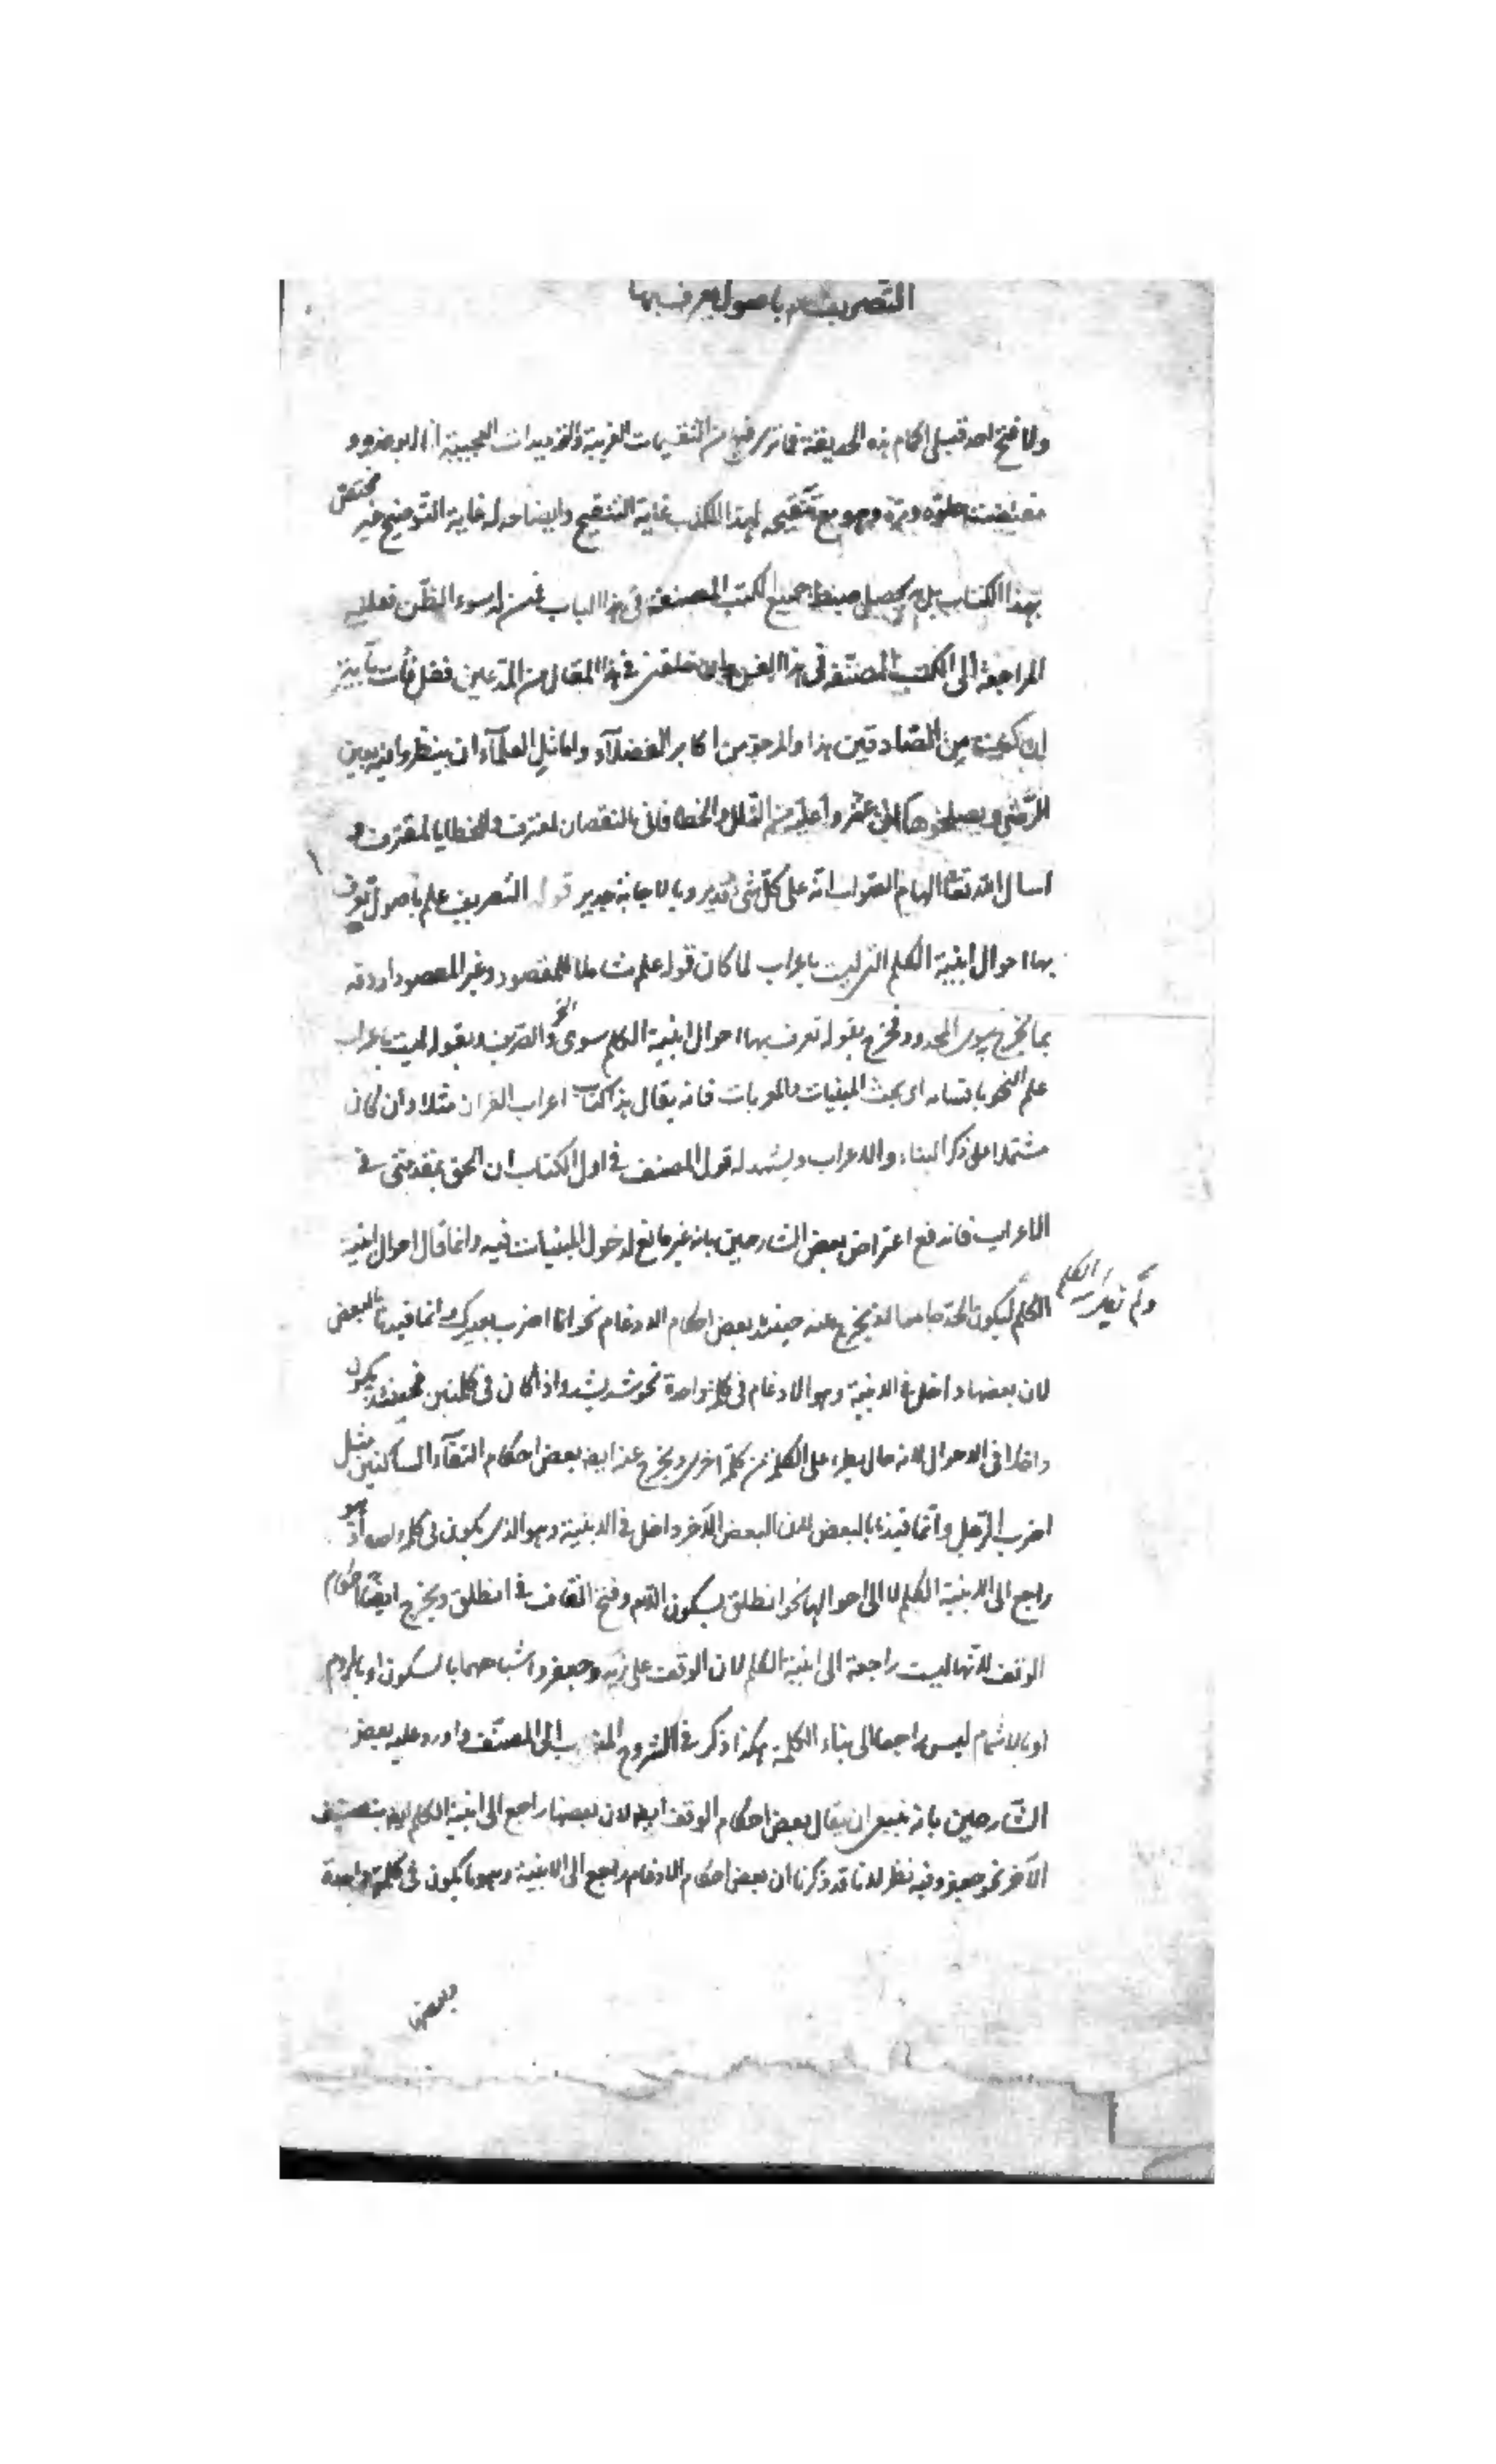 التصريف علم باصول يعرف بها
ولا فتح احد قبلى اكمام هذه الحديقة فما ترى فيه من التقسيمات الغريبة والتوبيدات العجيبة
وهو مع تنقيحه لهذا الكتاب غاية التنقيح وايضاحه له غاية التوضيح غير مختص
بهذا الكتاب بل به يحصل ضبط جميع الكتب المصنفة فى هذا الباب فمن له سوء الظن فعليه
المراجعة الى الكتب المصنفة فى هذا الفن فى هذا المقال من المدعين فقل فأت
ان كنت من الصادقين هذا والمرجو من اكابر الفضلاء واماثل العلماء ان ينظروا فيه بعين
الرضى ويصلحوا ما عثروا عليه من الخلل والخطا فانى بالنقصان لمعترف وللخطايا لمقترف و
اسال الله تعا الهام الصواب انه على كل شئ قدير وبالاجابة جدير قوله التصريف علم باصول تعرف
بها احوال ابنية الكلم التى ليست باعراب لما كان قوله علم شاملا للمقصود وغير المقصود اردفه
بما يخرج سوى المحدود فخرج بقوله تعرف بها احوال ابنية الكلم سوى النحو والتصريف وبقوله ليست باعراب
علم النحو باقسامه اى بحث المبنيات والمعربات فانه يقال هذا كتاب اعراب القران مثلا وان كان
مشتملا على ذكر البناء والاعراب ويشهد له قول المصنف فى اول الكتاب ان الحق بمقدمتى فى
الاعراب فاندفع اعتراض بعض الشارحين بانه غير مانع لدخول المبنيات فيه وانما قال احوال ابنية
الكلم ليكون الحد جامعا اذ يخرج عنه حينئذ بعض احكام الادغام نحو اضرب بعدك وانما قيدنا بالبعض
ولم يقل الكلم
لان بعضها داخل فى الابنية وهو الادغام فى كلمة واحدة نحو شد يشد واذا كان فى كلمتين فحينئذ يكون
داخلا فى الاحوال لانه حال يطرء على الكلم من كلمة اخرى ويخرج عنه ايضا بعض احكام التقاء الساكنين مثل
اضرب الرجل وانما قيدنا بالبعض لان البعض الآخر داخل فى الابنية وهو الذى يكون فى كلمة واحدة اذ هو
راجع الى ابنية الكلم لا الى احوالها نحو انطلق بسكون اللام وفتح القاف فى انطلق ويخرج ايضا احكام
الوقف لانها ليست راجعة الى ابنية الكلم لان الوقف على زيد وجعفر واشباههما بالسكون او بالروم
او بالاشمام ليس راجعا الى بناء الكلمة هكذا ذكر فى الشروح المنسوب الى المصنف واورد عليه بعض
الشارحين بانه ينبغى ان يقال بعض احكام الوقف ايضا لان بعضها راجع الى ابنية الكلم ايضا بتضعيف
الآخر نحو جعفر وفيه نظر لانا قد ذكرنا ان بعض احكام الادغام راجع الى الابنية وهو ما يكون فى كلمة واحدة
وبعض